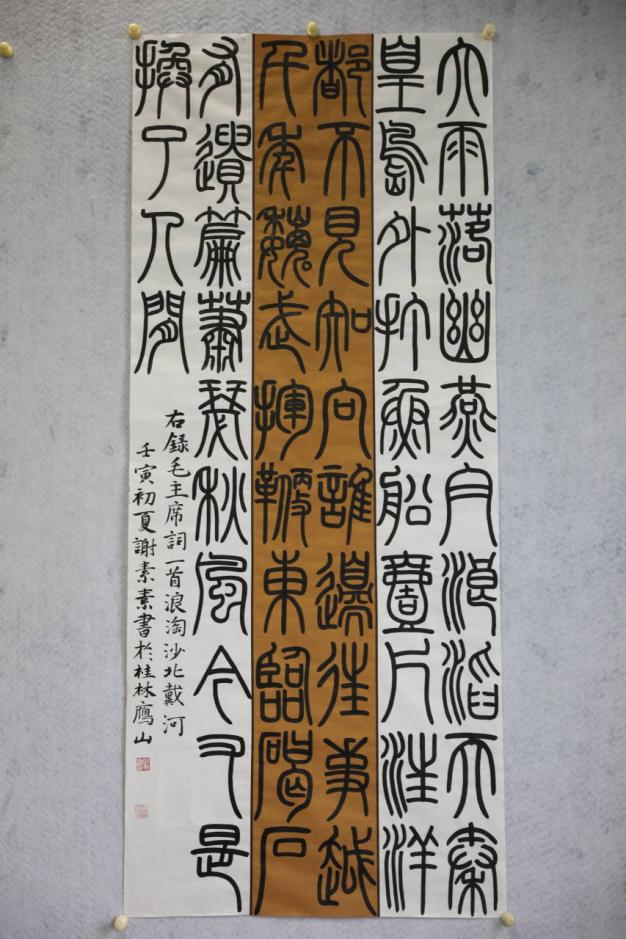 大雨落幽燕白浪滔天秦
皇島外打魚船壹片汪洋
都不見知向誰邊往事越
千年魏武揮鞭東臨碣石
有遺篇蕭瑟秋風今又是
換了人間
右錄毛主席詞一首浪淘沙北戴河
壬寅初夏謝素素書於桂林鷹山